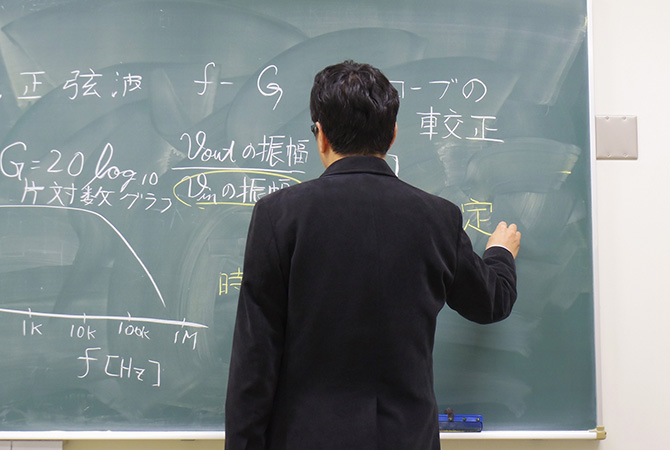 正弦波 f-G ローブの
較正
G=20log₁₀ Voutの振幅
Vinの振幅
片対数グラフ
定
時
1K 10K 100K 1M
f[Hz]